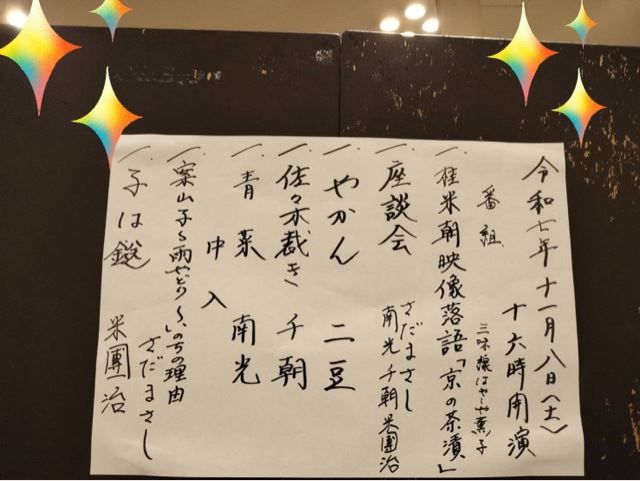 令和七年十一月八日(土)
十六時開演
番組
三味線はやしや薫子
一、桂米朝映像落語「京の茶漬」
一、座談会 さだまさし
南光 千朝 米團治
一、やかん 二豆
一、佐々木裁き 千朝
一、青菜 南光
中入
一、案山子〜雨やどり〜、いのちの理由
さだまさし
一、子は鎹 米團治